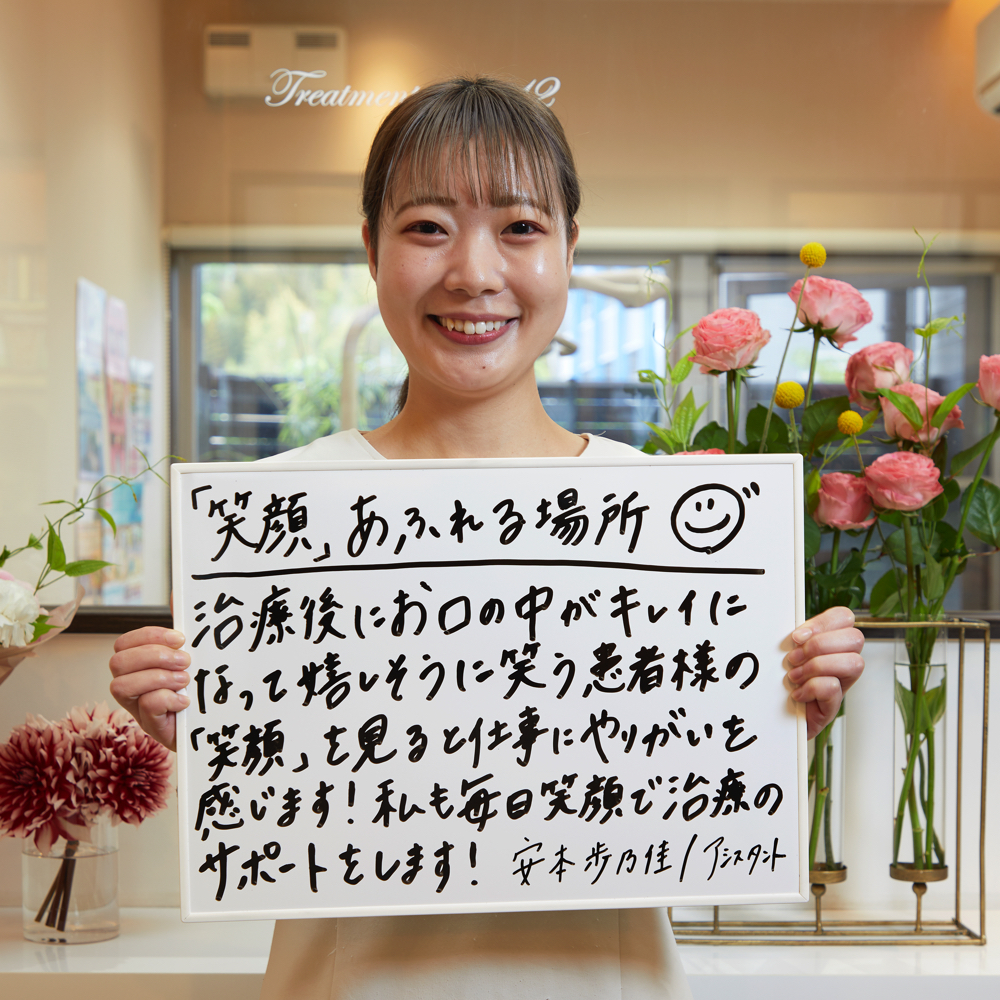 Treatment 12
「笑顔」あふれる場所
治療後にお口の中がキレイに
なって嬉しそうに笑う患者様の
「笑顔」を見ると仕事にやりがいを
感じます！私も毎日笑顔で治療の
サポートをします！ 安本歩乃佳/アシスタント